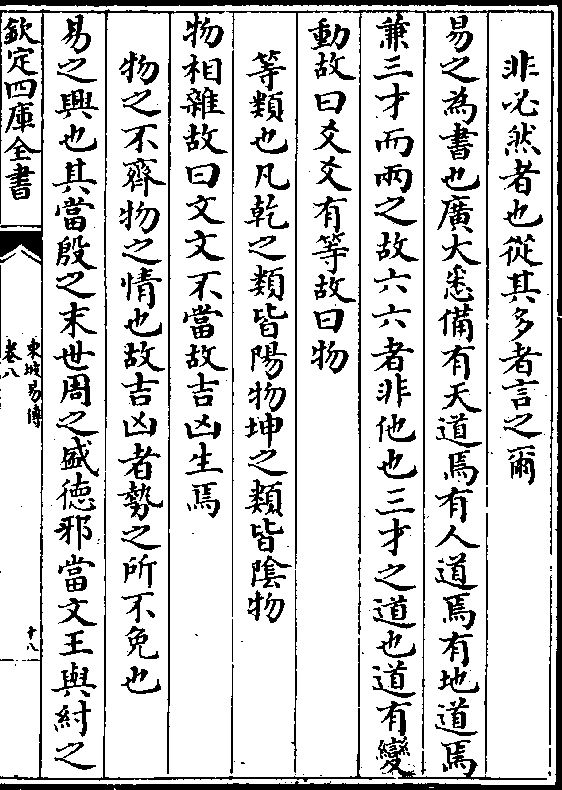 非必然者也從其多者言之爾
易之為書也廣大悉備有天道焉有人道焉有地道焉
兼三才而兩之故六六者非他也三才之道也道有變
動故曰爻爻有等故曰物
等類也凡乾之類皆陽物坤之類皆陰物
物相雜故曰文文不當故吉凶生焉
物之不齊物之情也故吉凶者勢之所不免也
易之興也其當殷之末世周之盛徳邪當文王與紂之
欽定四庫全書
東坡易傳
卷八
十八